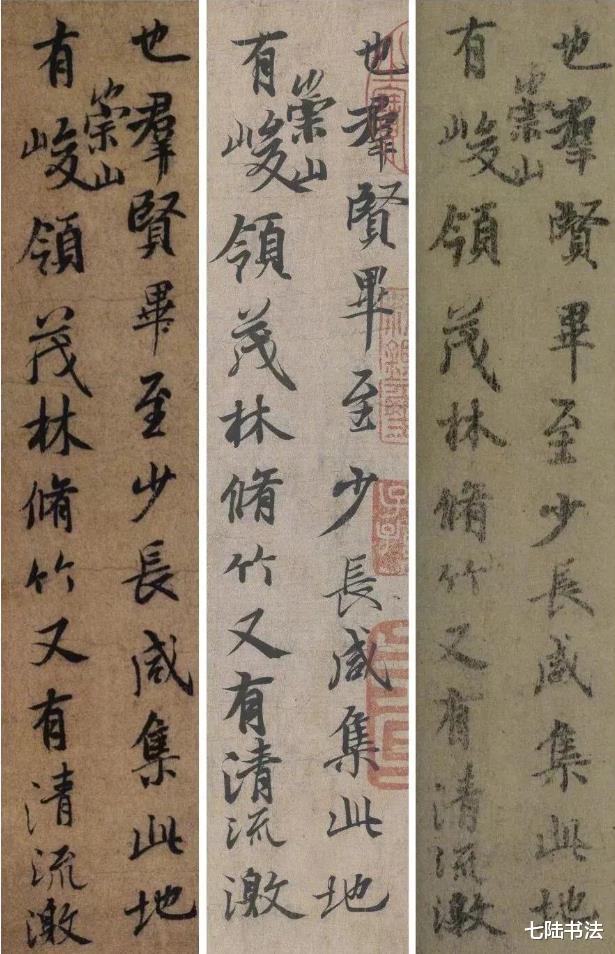 也羣賢畢至少長咸集此地
有崇山峻領茂林脩竹又有清流激
也羣賢畢至少長咸集此地
有崇山峻領茂林脩竹又有清流激
也羣賢畢至少長咸集此地
有崇山峻領茂林脩竹又有清流激
七陆书法